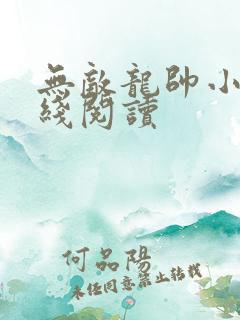 無敵龍帥小
綫閱讀
何品陽
未經同意禁止轉載